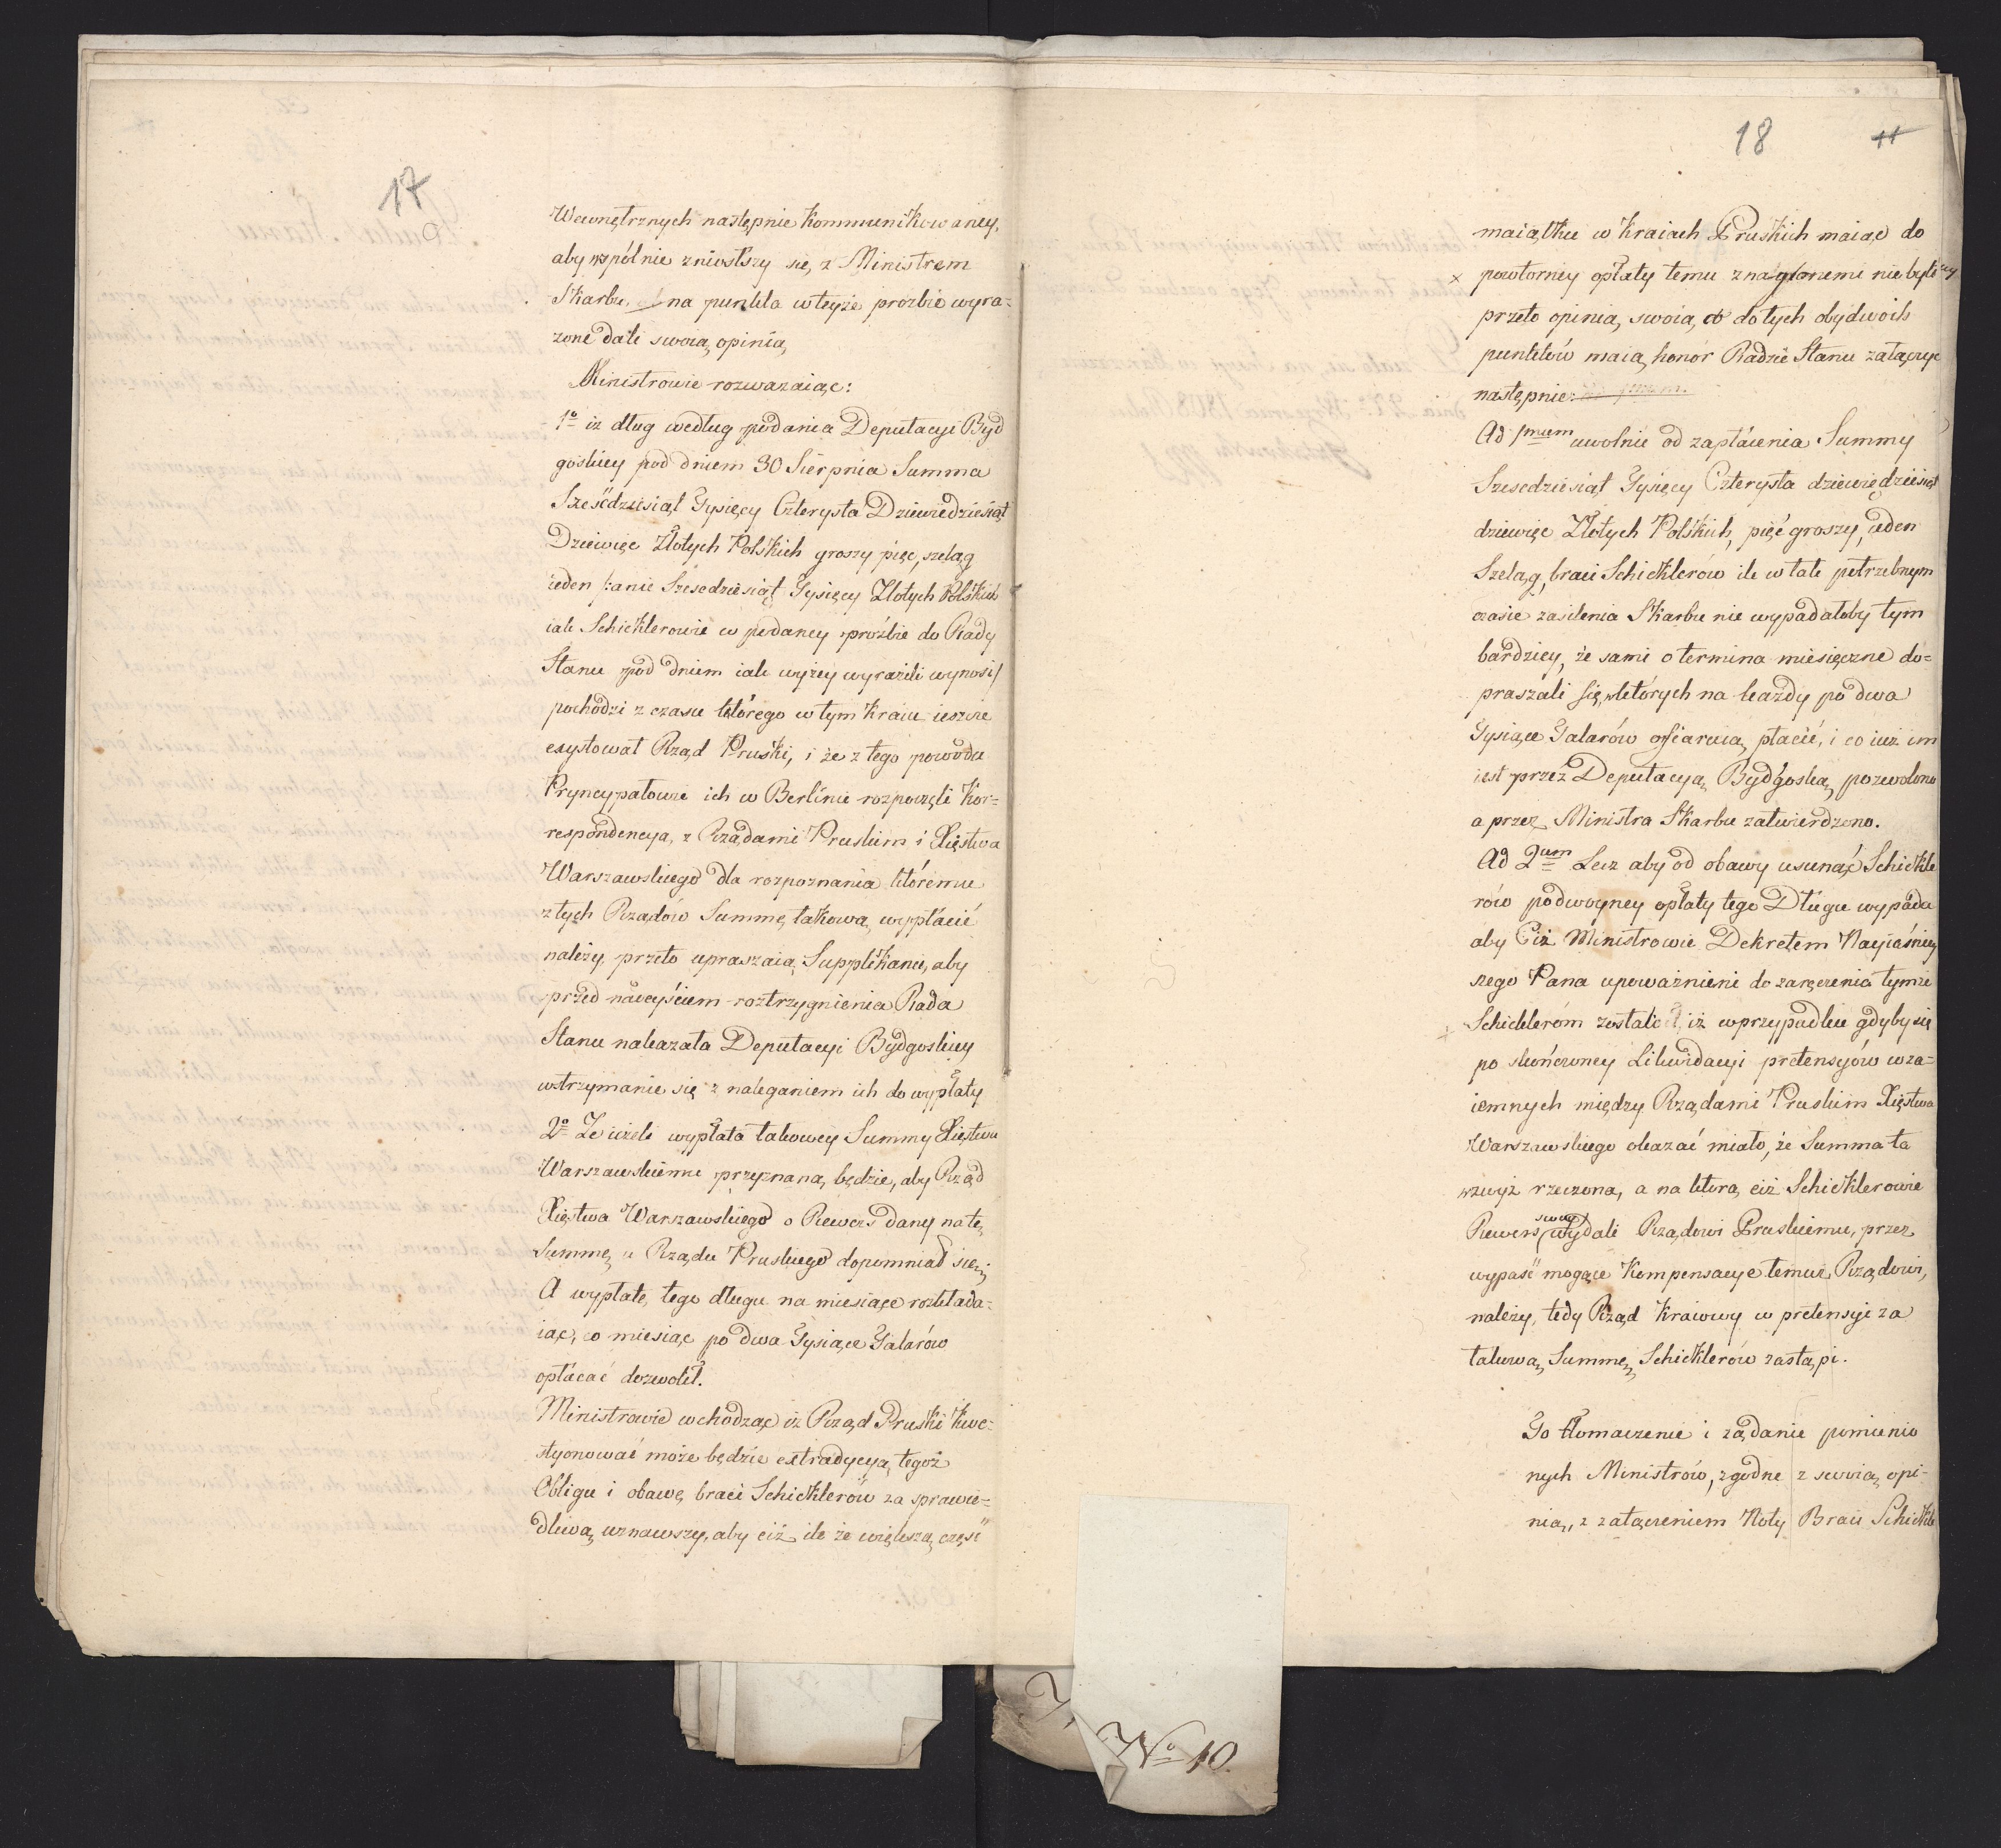 17
9
Wewnętrznych następnie Kommunikowaney,
aby wspólnie zniosłszy się, z Ministrem
Skarbu, na punkta w teyże prozbie wyra=
żone dali swoią opinią,
Ministrowie rozważaiąc:
1o iż dług według podania Deputacyi Byd
goskiey pod dniem 30 Sierpnia Summa
Sześćdziesiąt Tysięcy Czterysta Dziewiedziesiąt
Dziewięć Złotych Polskich groszy pięć, szeląg
ieden /: a nie Szescdziesiąt Tysięcy Złotych Polskich
iak Schicklerowie w podaney proźbie do Rady
Stanu pod dniem iak wyżey wyrazili wynosi/
pochodzi z czasu którego w tym Kraiu ieszcze
exystował Rząd Pruski, i że z tego powodu
Pryncypałowie ich w Berlinie rozpoczęli Kor=
respondencyą, z Rządami Pruskim i Xięstwa
Warszawskiego dla rozpoznania któremu
z tych Rządów Summę takową wypłacić
należy, przeto upraszaią Supplikanci, aby
przed nadeyściem roztrzygnienia Rada
Stanu nakazała Deputacyi Bydgoskiey
wstrzymanie się z naleganiem ich do wypłaty
2o Że ieżeli wypłata takowey Summy Xięstwu
Warszawskiemu przyznaną będzie, aby Rząd
Xięstwa Warszawskiego o Rewers dany na tę
Summę u Rządu Pruskiego dopomniał się,
A wypłatę tego długu na miesiące rozkłada=
iąc, co miesiąc po dwa Tysiące Talarów
opłacać dozwolił.
Ministrowie wchodząc iż Rząd Pruski Kwe=
styonować może będzie extradycyą tegoż
Obligu i obawę braci Schicklerów za sprawie=
dliwą uznawszy, aby ciż ile że większą część
18
11
maiątku w Kraiach Pruskich maiąc do
x powtorney opłaty temu znaglonemi nie byli
przeto opinią swoią co do tych obydwoch
punktów maią honor Radzie Stanu załączyć
następnie:
Ad 1mum uwolnić od zapłacenia Summy
Szescdziesiąt Tysięcy Czterysta dziewiędziesiąt
dziewięć Złotych Polskich, pięć groszy, ieden
Szeląg, braci Schicklerów ile w tak potrzebnym
czasie zasilenia Skarbu nie wypadałoby tym
bardziey, że sami o termina miesięczne do=
praszali się, w których na każdy po dwa
Tysiące Talarów ofiaruią płacić, i co iuż im
iest przez Deputacyą Bydgoską pozwolono
a przez Ministra Skarbu zatwierdzono.
Ad 2um Lecz aby od obawy usunąć Schickle
rów podwoyney opłaty tego Długu wypada
aby Ciż Ministrowie Dekretem Nayiaśniey
szego Pana upoważnieni do zaręczenia tymże
Schicklerom zostali, iż w przypadku gdyby się
po skończoney Likwidacyi pretensyów wza=
iemnych między Rządami Pruskim Xięstwa
Warszawskiego okazać miało, że Summa ta
wzwyż rzeczona, a na którą ciż Schicklerowie
Rewers swoy wydali Rządowi Pruskiemu, przez
wypaść mogące Kompensacye temuż Rządowi,
należy, tedy Rząd Kraiowy w pretensyi za
takową Summę Schicklerów zastąpi.
To tłomaczenie i żądanie pomienio
nych Ministrów, zgodne z swoią opi-
nią, z załączeniem Noty Braci Schickle
No 10.